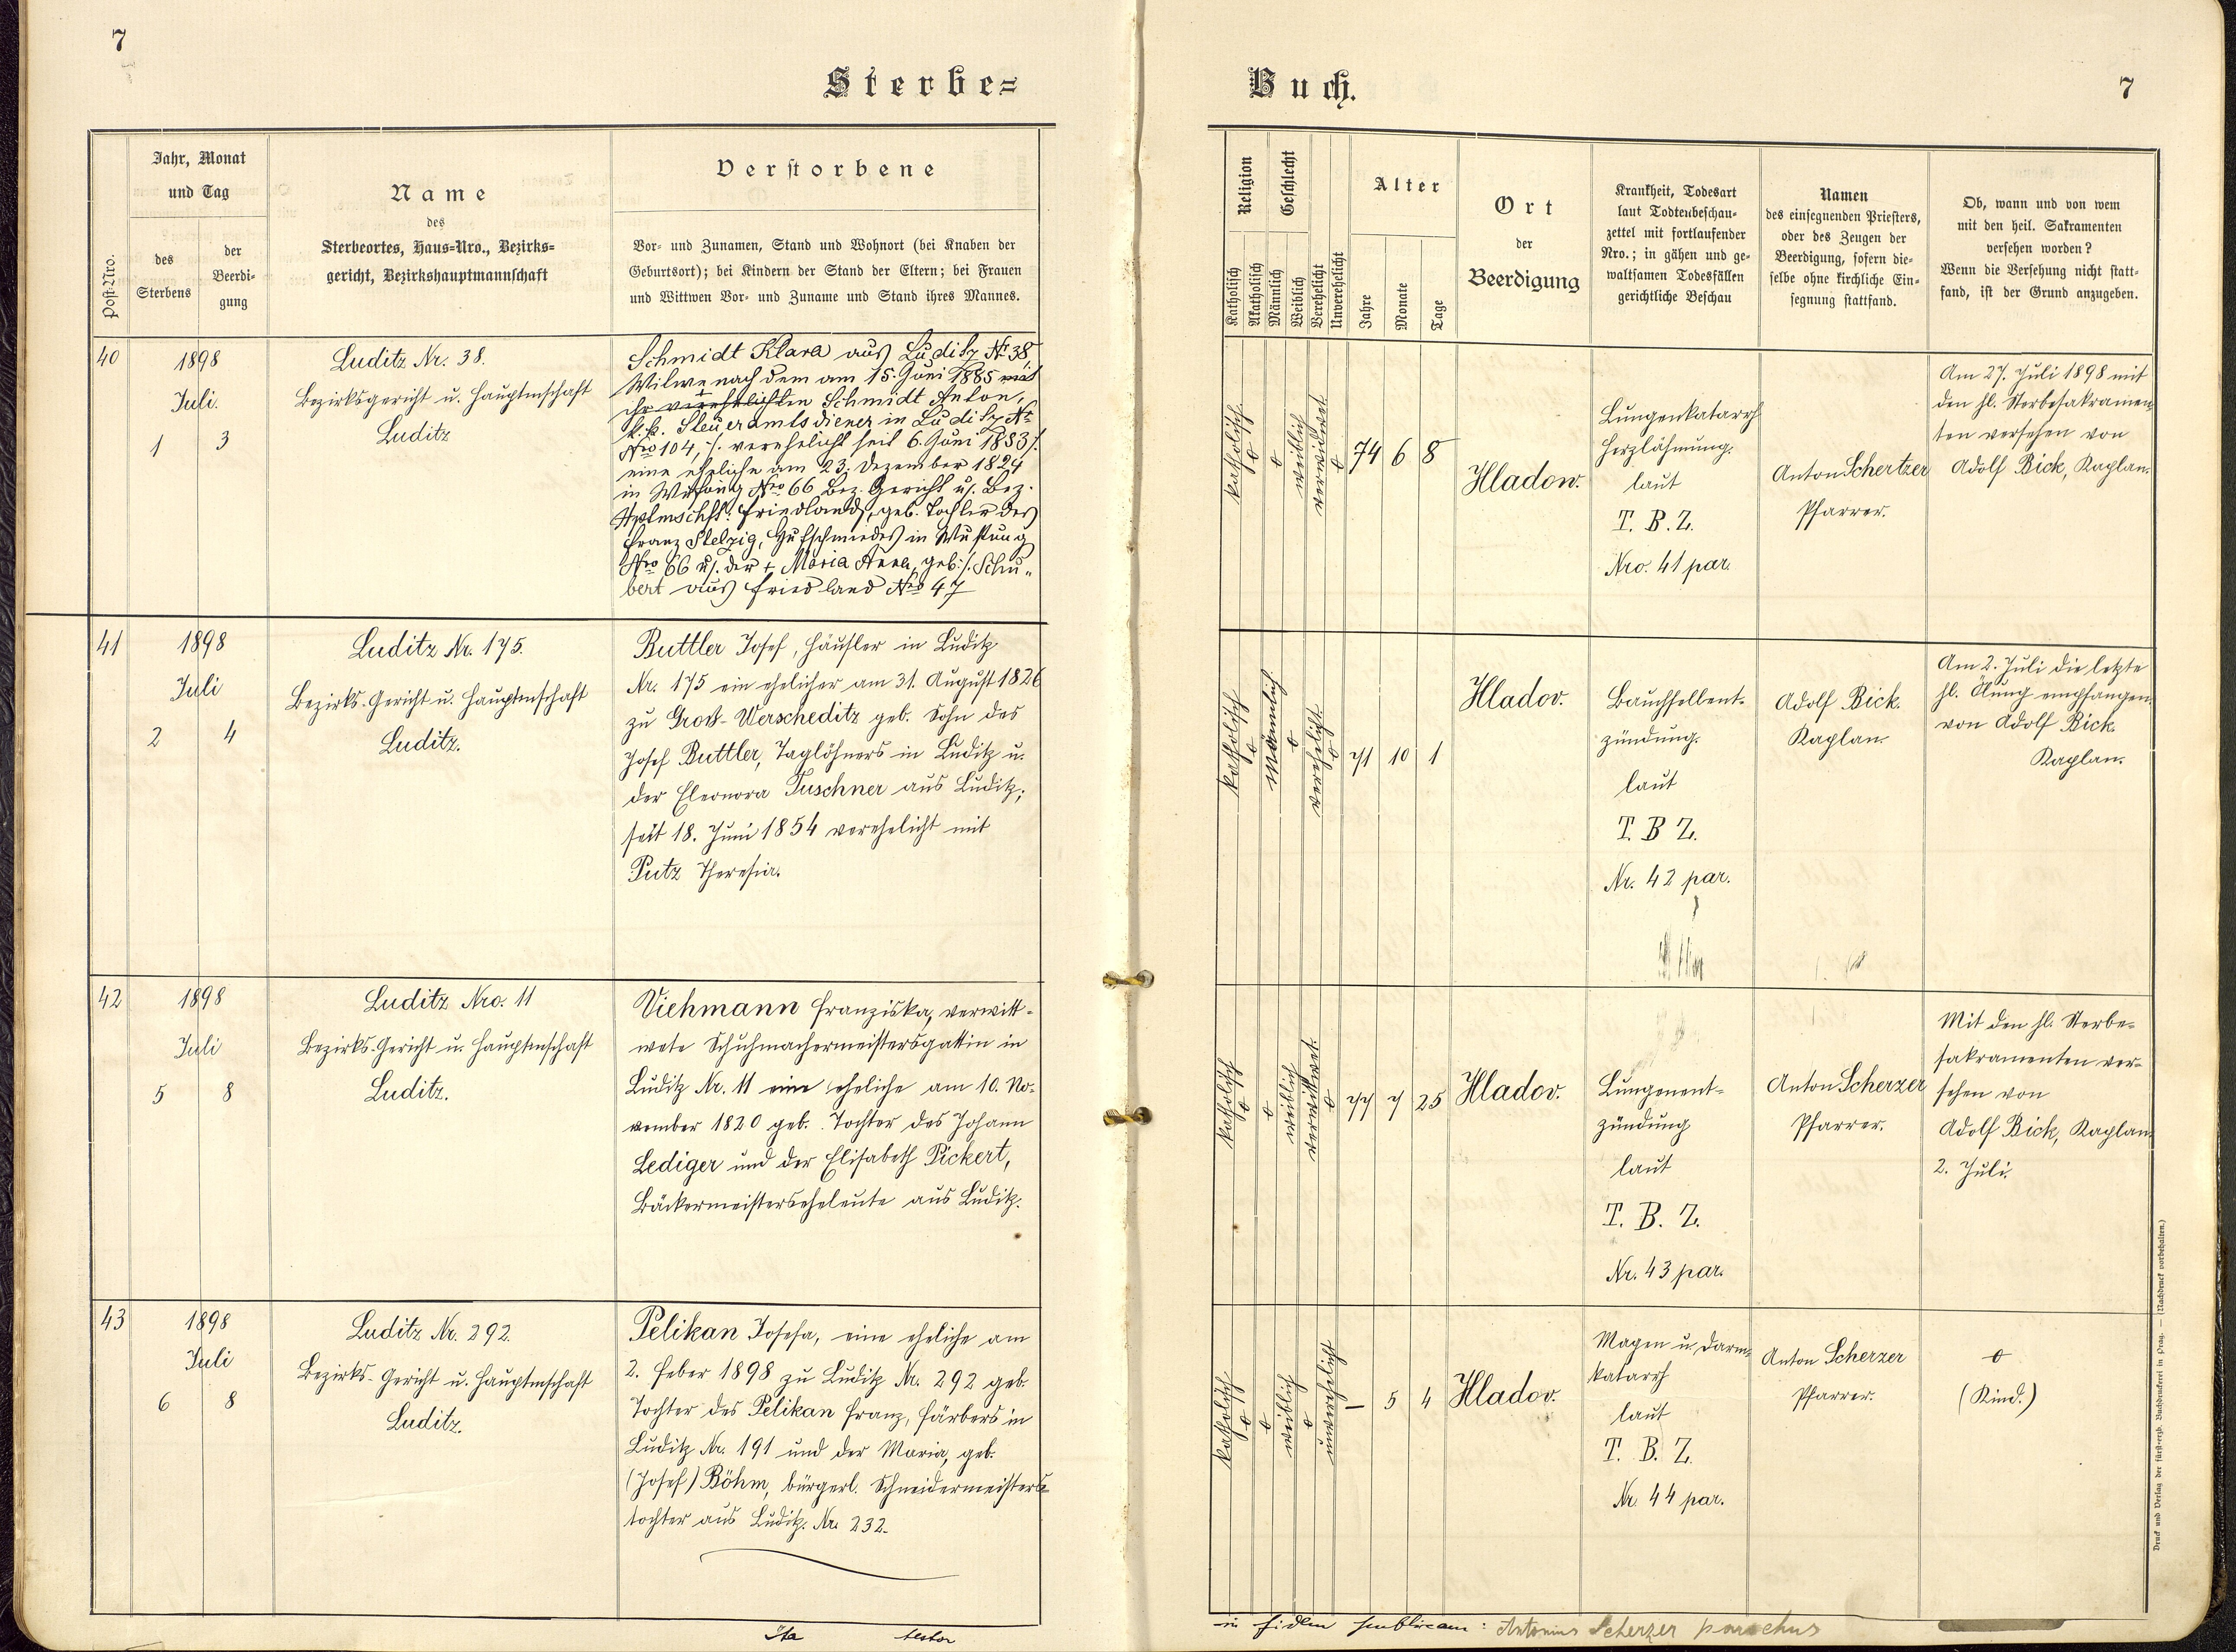 7
Sterbe=
Jahr, Monat
und Tag
Post-Nro.
des
Sterbens
der
Beerdi-
gung
Name
des
Sterbeortes, Haus=Nro., Bezirks=
gericht, Bezirkshauptmannschaft
Verstorbene
Vor- und Zunamen, Stand und Wohnort (bei Knaben der
Geburtsort); bei Kindern der Stand der Eltern; bei Frauen
und Wittwen Vor- und Zuname und Stand ihres Mannes.
40
1898
Juli.
1 3
Luditz Nr. 38.
Bezirksgericht u. Hauptmschaft
Luditz
Schmidt Klara aus Luditz No 38,
Witwe nach dem am 15. Juni 1885 mit
ihr verehelichten Schmidt Anton,
k.k. Steueramtsdiener in Luditz Nr
Nro 104, /. verehelicht seit 6. Juni 1883 /.
eine eheliche am 23. Dezember 1824
in Wustung Nro 66 Bez. Gericht u. Bez.
Hptmschft. Friedland, geb. Tochter des
Franz Stelzig, Hufschmiedes in Wustung
Nro 66 u. der † Maria Anna, geb. /. Schu-
bert aus Friedland Nro 47
41
1898
Juli
2 4
Luditz Nr. 175.
Bezirks-Gericht u. Hauptmschaft
Luditz.
Buttler Josef, Häusler in Luditz
Nr. 175 ein ehelicher am 31. August 1826
zu Groß-Werscheditz geb. Sohn des
Josef Buttler, Taglöhners in Luditz u.
der Eleonora Tuschner aus Luditz;
seit 18. Juni 1854 verehelicht mit
Putz Theresia.
42
1898
Juli
5 8
Luditz Nro. 11
Bezirks-Gericht u. Hauptmschaft
Luditz.
Viehmann Franziska, verwitt-
wete Schuhmachermeistersgattin in
Luditz Nr. 11 eine eheliche am 10. No-
vember 1820 geb. Tochter des Johann
Lediger und der Elisabeth Pickert,
Bäckermeisterseheleute aus Luditz.
43
1898
Juli
6 8
Luditz Nr. 292.
Bezirks-Gericht u. Hauptmschaft
Luditz.
Pelikan Josefa, eine eheliche am
2. Feber 1898 zu Luditz Nr. 292 geb.
Tochter des Pelikan Franz, Färbers in
Luditz Nr. 191 und der Maria, geb.
(Josef) Böhm, bürgerl. Schneidermeisters-
tochter aus Luditz. Nr. 232.
Ita testor
Buch.
7
Religion
Katholisch
Akatholisch
Geschlecht
Männlich
Weiblich
Verehelicht
Unverehelicht
Alter
Jahre
Monate
Tage
Ort
der
Beerdigung
Krankheit, Todesart
laut Todtenbeschau-
zettel mit fortlaufender
Nro.; in gähen und ge-
waltsamen Todesfällen
gerichtliche Beschau
Namen
des einsegnenden Priesters,
oder des Zeugen der
Beerdigung, sofern die-
selbe ohne kirchliche Ein-
segnung stattfand.
Ob, wann und von wem
mit den heil. Sakramenten
versehen worden?
Wenn die Versehung nicht statt-
fand, ist der Grund anzugeben.
katholisch
o
o
weiblich
verwitwet
o
74 6 8
Hladow.
Lungenkatarrh
Herzlähmung.
laut
T. B. Z.
Nro. 41 par.
Anton Schertzer
Pfarrer.
Am 27. Juli 1898 mit
den hl. Sterbesakramen-
ten versehen von
Adolf Bick, Kaplan.
katholisch
o
männlich
o
verehelicht
o
71 10 1
Hladov.
Bauchfellent-
zündung.
laut
T. B Z.
Nr. 42 par.
Adolf Bick.
Kaplan.
Am 2. Juli die letzte
hl. Ölung empfangen
von Adolf Bick.
Kaplan.
katholisch
o
o
weiblich
verwittwet.
o
77 7 25
Hladov.
Lungenent-
zündung
laut
T. B. Z.
Nr. 43 par.
Anton Scherzer
Pfarrer.
Mit den hl. Sterbe-
sakramenten ver-
sehen von
Adolf Bick, Kaplan
2. Juli.
katholisch
o
o
weiblich
o
unverehelicht
— 5 4
Hladov.
Magen u. Darm-
katarrh
laut
T. B. Z.
Nr. 44 par.
Anton Scherzer
Pfarrer.
o
(Kind.)
in fidem publicam: Antonius Scherzer parochus
Druck und Verlag der fürst-erzb. Buchdruckerei in Prag. — (Nachdruck vorbehalten.)